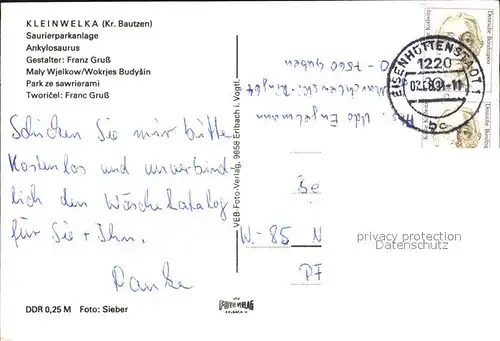 KLEINWELKA (Kr. Bautzen)
Saurierparkanlage
Ankylosaurus
Gestalter: Franz Gruß
Mały Wjelkow/Wokrjes Budyšin
Park ze sawrierami
Tworićel: Franc Gruß
Schicken Sie mir bitte
kostenlos und unverbind-
lich den Wäschekatalog
für Sie + Ihn.
Danke
DDR 0,25 M Foto: Sieber
VEB-Foto-Verlag, 9658 Erlbach i. Vogtl.
FOTO VERLAG
ERLBACH
Deutsche Bundespost
Deutsche Bundespost
EISENHÜTTENSTADT 1
1220
-11
bc
Udo Engelmann
O - 7560 Guben
W-85 N
PF
privacy protection
Datenschutz